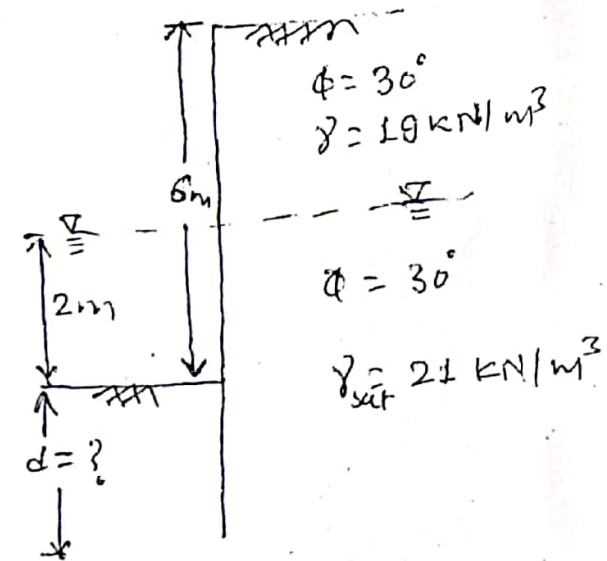 ϕ = 30°
γ = 19 KN/m³
6m
2m
ϕ = 30°
γsat = 21 KN/m³
d = ?